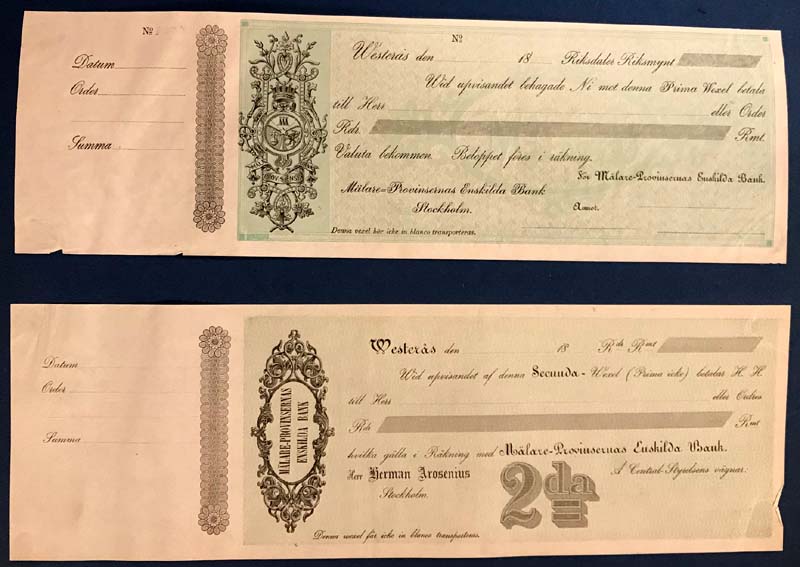 Nº
Datum
Order
Summa
Nº
Westerås den 18 Riksdaler Riksmynt
Wid uppvisandet behagade Ni mot denna Prima Wexel betala
till Herr eller Order
Rdr. Rmt.
Valuta bekommen. Beloppet föres i räkning.
För Mälare-Provinsernas Enskilda Bank.
Mälare=Provinsernas Enskilda Bank
Stockholm.
Denna vexel bör icke in blanco transporteras.
Datum
Order
Summa
MÄLARE-PROVINSERNAS
ENSKILDA BANK
Westerås den 18 Rdr Rmt
Wid uppvisandet af denna Secunda-Wexel (Prima icke) betalas H. H.
till Herr eller Ordres
Rdr Rmt
hvilka gälla i Räkning med Mälare-Provinsernas Enskilda Bank.
Herr Herman Arosenius
Å Central-Styrelsens vägnar:
Stockholm.
2da
Denna wexel får icke in blanco transporteras.